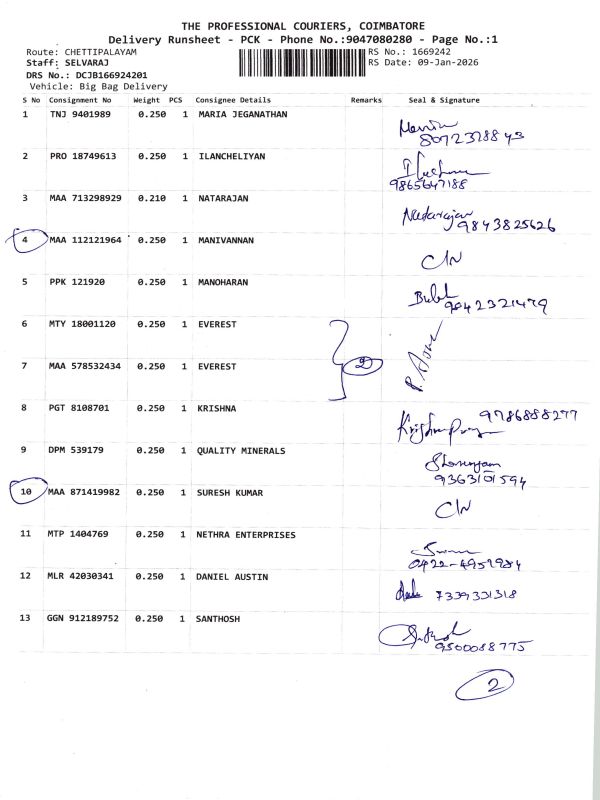 THE PROFESSIONAL COURIERS, COIMBATORE
Delivery Runsheet - PCK - Phone No.:9047080280 - Page No.:1
Route: CHETTIPALAYAM RS No.: 1669242
Staff: SELVARAJ RS Date: 09-Jan-2026
DRS No.: DCJB166924201
Vehicle: Big Bag Delivery
S No Consignment No Weight PCS Consignee Details Remarks Seal & Signature
1 TNJ 9401989 0.250 1 MARIA JEGANATHAN
2 PRO 18749613 0.250 1 ILANCHELIYAN
9865647188
3 MAA 713298929 0.210 1 NATARAJAN Natarajan
9843825626
4 MAA 112121964 0.250 1 MANIVANNAN
C/N
5 PPK 121920 0.250 1 MANOHARAN
9042321479
6 MTY 18001120 0.250 1 EVEREST
7 MAA 578532434 0.250 1 EVEREST 2
8 PGT 8108701 0.250 1 KRISHNA 9786888277
9 DPM 539179 0.250 1 QUALITY MINERALS
9363101594
10 MAA 871419982 0.250 1 SURESH KUMAR
C/N
11 MTP 1404769 0.250 1 NETHRA ENTERPRISES
0422-4957984
12 MLR 42030341 0.250 1 DANIEL AUSTIN
7339331318
13 GGN 912189752 0.250 1 SANTHOSH
9500088775
2